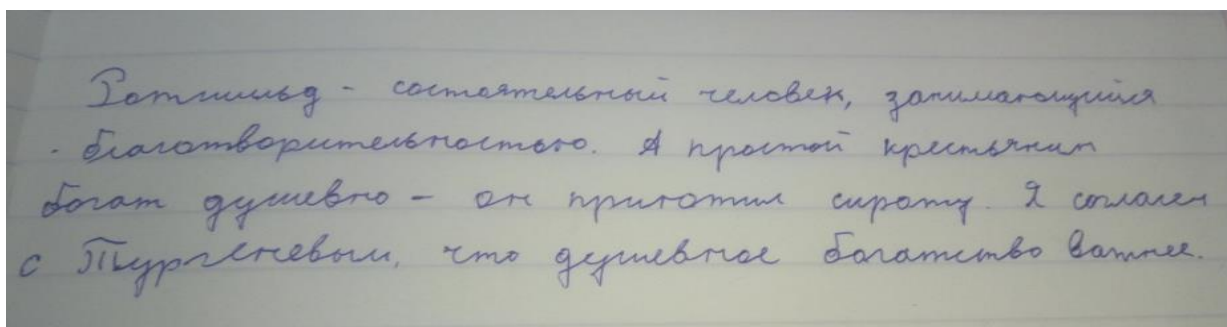 Ротшильд - состоятельный человек, занимающийся
благотворительностью. А простой крестьянин
богат душевно - он приютил сироту. Я согласен
с Тургеневым, что душевное богатство важнее.